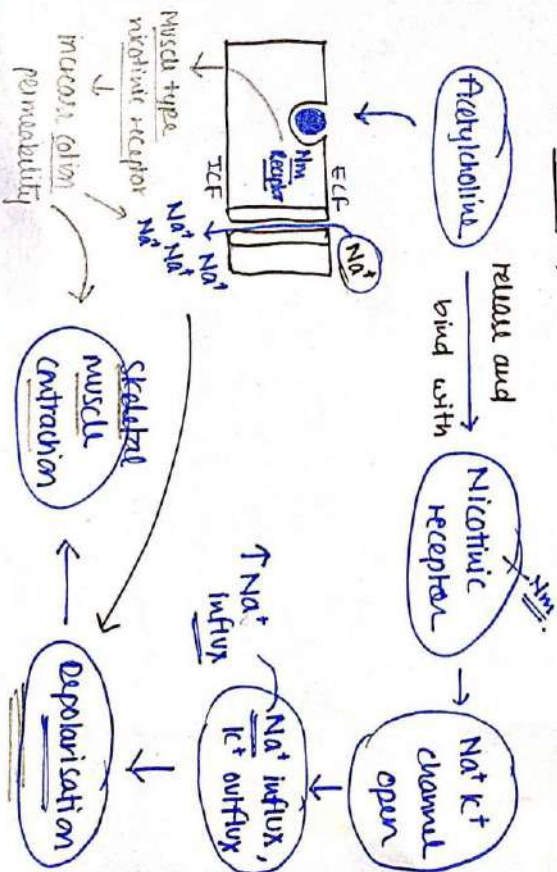 Acetylcholine
release and
bind with
Nicotinic
receptor
Nm
Na⁺ K⁺
channel
open
Na⁺ influx,
K⁺ outflux
↑ Na⁺
influx
Depolarisation
Skeletal
muscle
contraction
ECF
Nm
Receptor
ICF
Na⁺
Na⁺ Na⁺
Na⁺ Na⁺
Muscle type
nicotinic receptor
↓
increase cation
permeability